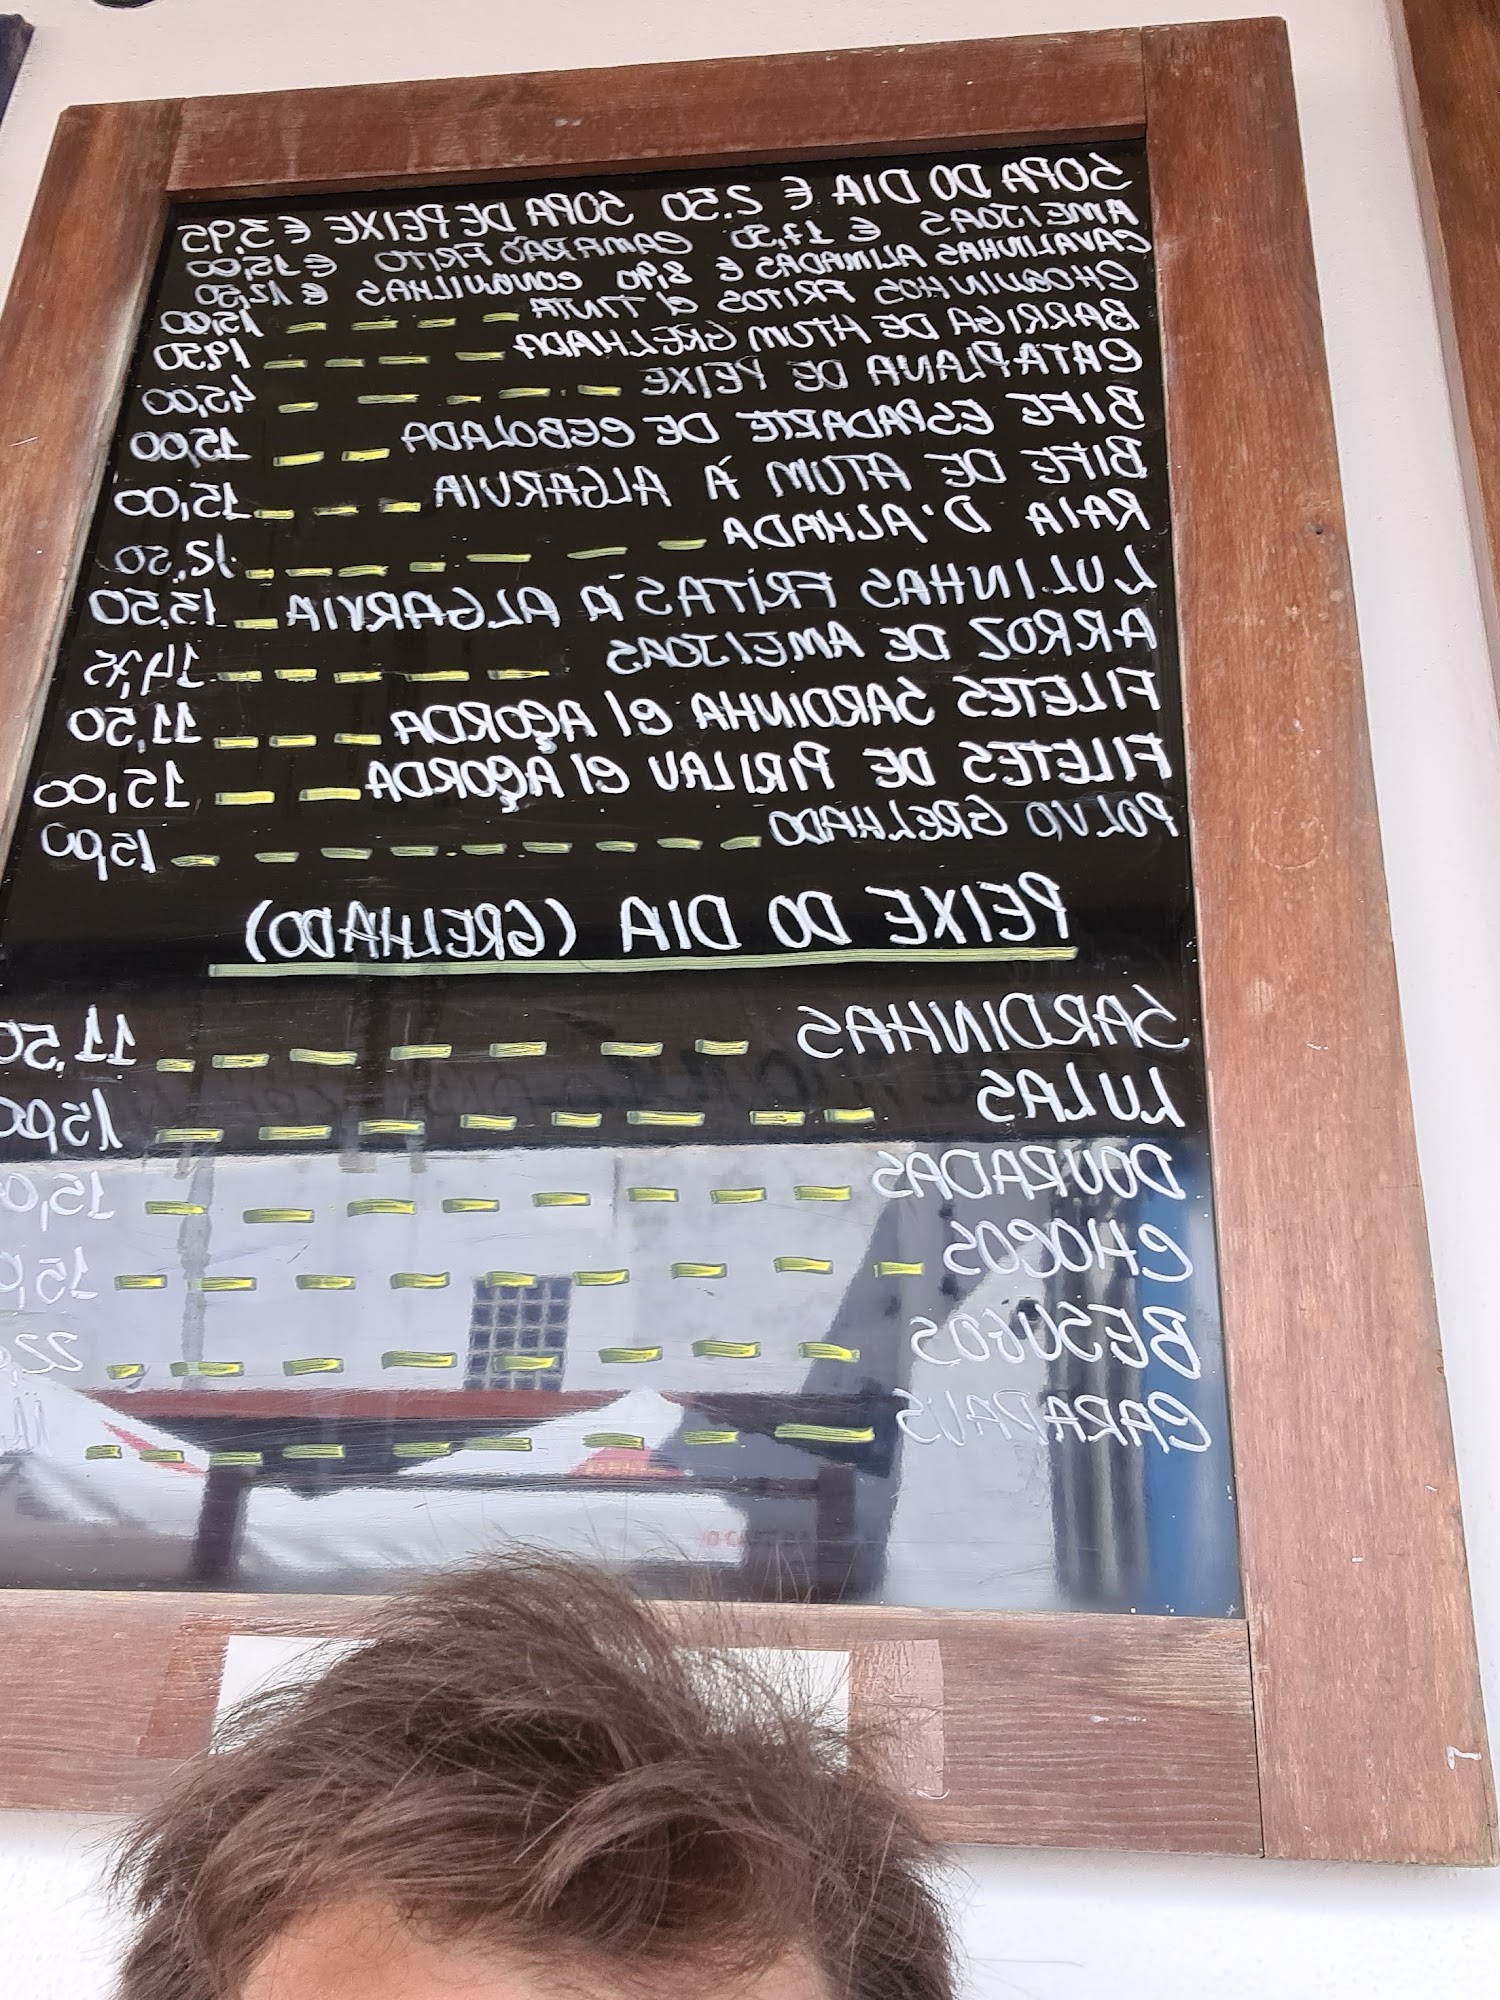 SOPA DO DIA € 2.50 SOPA DE PEIXE € 3,95
AMEIJOAS € 17,50 CAMARÃO FRITO € 15,00
CAVALINHAS ALIMADAS € 8,90 CONQUILHAS € 12,50
CHOQUINHOS FRITOS C/ TINTA 15,00
BARRIGA DE ATUM GRELHADA 19,50
CATAPLANA DE PEIXE 45,00
BIFE ESPADARTE DE CEBOLADA 15,00
BIFE DE ATUM À ALGARVIA 15,00
RAIA D'ALHADA 12,50
LULINHAS FRITAS À ALGARVIA 13,50
ARROZ DE AMEIJOAS 14,75
FILETES SARDINHA C/ AÇORDA 11,50
FILETES DE PIRILAU C/ AÇORDA 15,00
POLVO GRELHADO 15,00
PEIXE DO DIA (GRELHADO)
SARDINHAS 11,50
LULAS 15,00
DOURADAS 15,0
CHOCOS 15,0
BESUGOS 22,
CARAPAUS